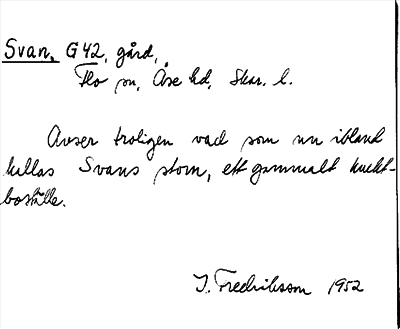 Svan, G 42, gård,
Flo sn, Åse hd, Skar. l.
Avser troligen vad som nu ibland
kallas Svans storp, ett gammalt knekt-
boställe.
I. Fredriksson 1952